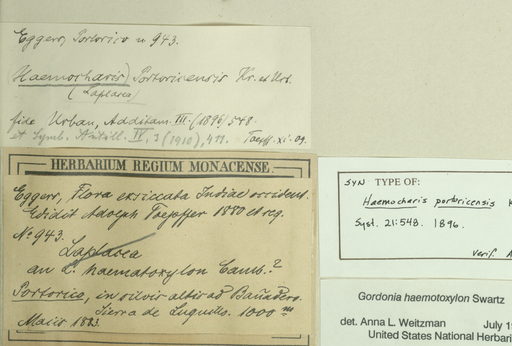 Eggers, Portorico n 943.
Haemocharis) Portoricensis Kr. et Urb.
(Laplacea)
fide Urban, Additam. III. (1896) 548
et Symb. Antill. IV, 3 (1910), 411. Toepff. XI. 09.
HERBARIUM REGIUM MONACENSE.
Eggers, Flora exsiccata Indiae occident.
Edidit Adolph Toepffer 1880 et sq.
No 943.
Laplacea
an L. haematoxylon Camb.?
Portorico, in silvis altis ad Bañadero.
Sierra de Luquillo. 1000 m
Maio 1883.
SYN TYPE OF:
Haemocharis portoricensis K
Syst. 21:548. 1896.
Verif. A
Gordonia haemotoxylon Swartz
det. Anna L. Weitzman July 19
United States National Herbari